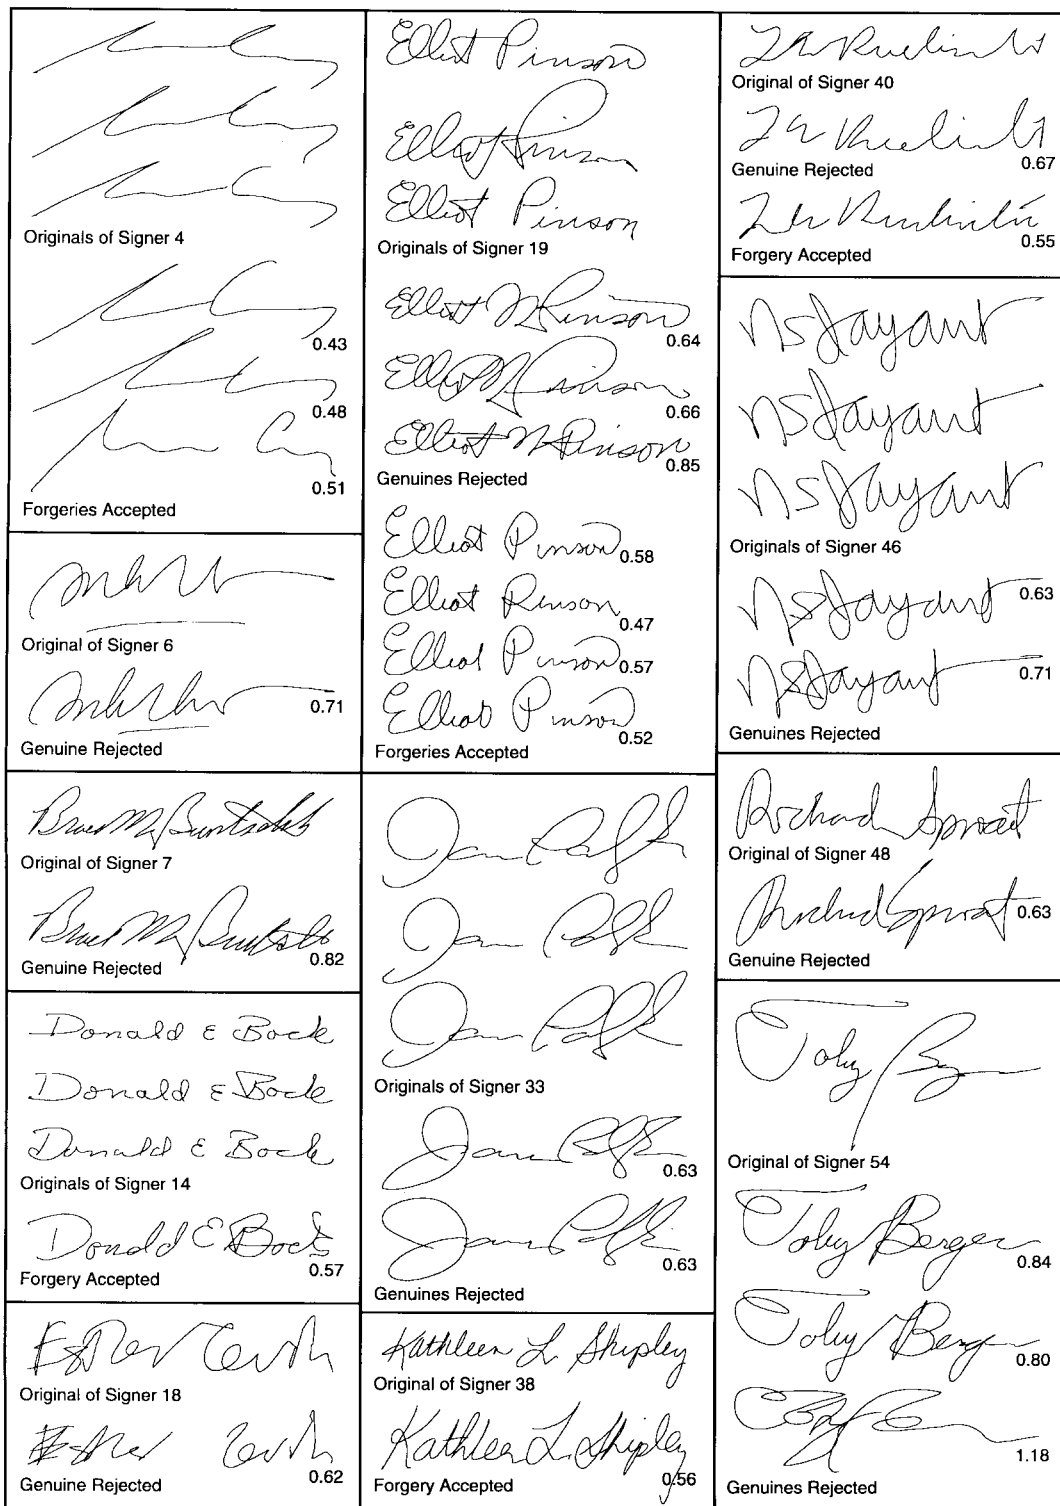 Originals of Signer 4
0.43
0.48
0.51
Forgeries Accepted
Original of Signer 6
0.71
Genuine Rejected
Original of Signer 7
Genuine Rejected 0.82
Donald E Bock
Donald E Bock
Donald E Bock
Originals of Signer 14
Donald E Bock
Forgery Accepted 0.57
Original of Signer 18
Genuine Rejected 0.62
Elliot Pinson
Elliot Pinson
Elliot Pinson
Originals of Signer 19
Elliot N Pinson
0.64
Elliot N Pinson
0.66
Elliot N Pinson
0.85
Genuines Rejected
Elliot Pinson 0.58
Elliot Pinson
0.47
Elliot Pinson 0.57
Elliot Pinson
0.52
Forgeries Accepted
Originals of Signer 33
0.63
0.63
Genuines Rejected
Kathleen L. Shipley
Original of Signer 38
Kathleen L. Shipley
Forgery Accepted 0.56
Original of Signer 40
Genuine Rejected 0.67
0.55
Forgery Accepted
NS Jayant
NS Jayant
NS Jayant
Originals of Signer 46
NS Jayant 0.63
NS Jayant 0.71
Genuines Rejected
Richard Sproat
Original of Signer 48
Richard Sproat 0.63
Genuine Rejected
Toby
Original of Signer 54
Toby Berger
0.84
Toby Berger
0.80
1.18
Genuines Rejected